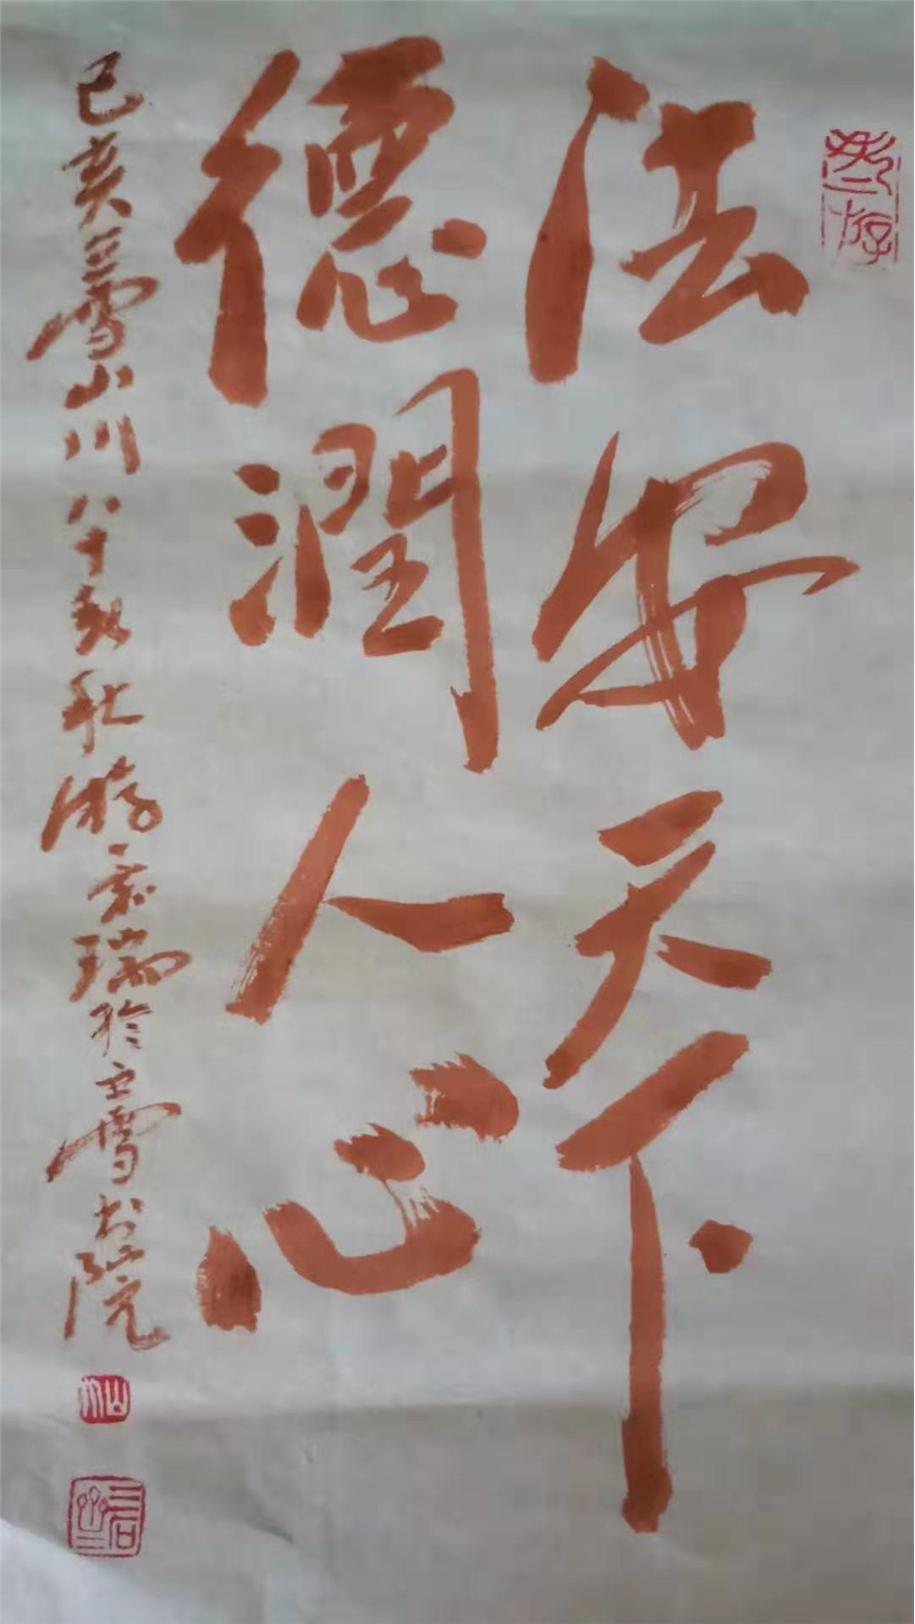 法安天下
德潤人心
己亥三雪山川八十叟秋游袁瑞於三雪书院